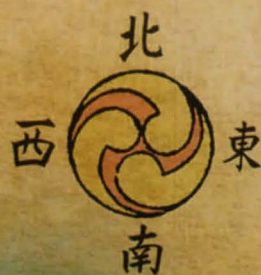 北
西 東
南